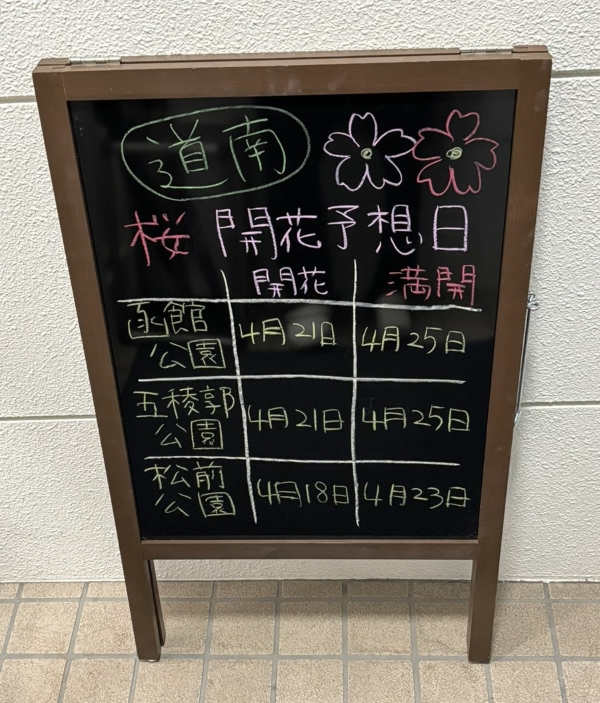 道南
桜開花予想日
開花 満開
函館公園 4月21日 4月25日
五稜郭公園 4月21日 4月25日
松前公園 4月18日 4月23日